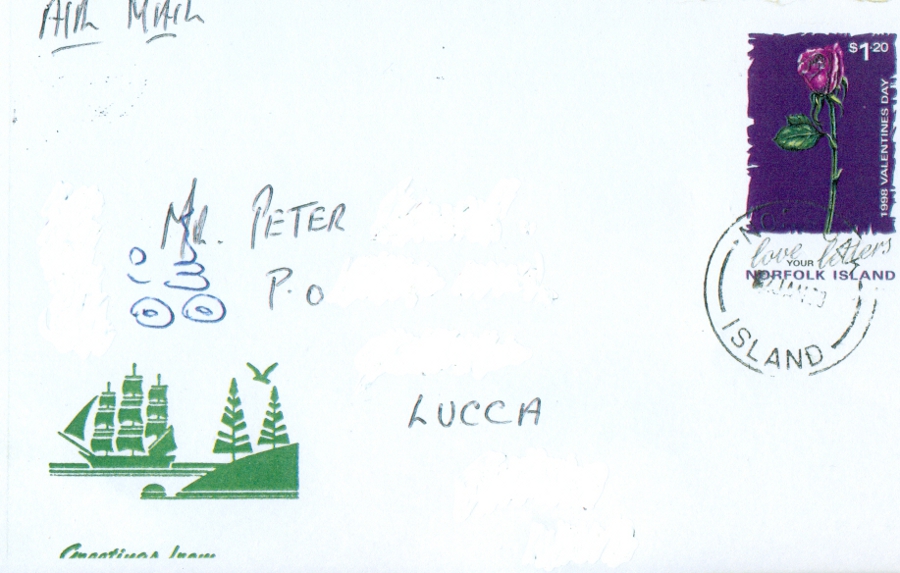 AIR MAIL
$1.20
1998 VALENTINES DAY
love YOUR letters
NORFOLK ISLAND
JAN
ISLAND
MR. PETER
P.O
LUCCA
Greetings from